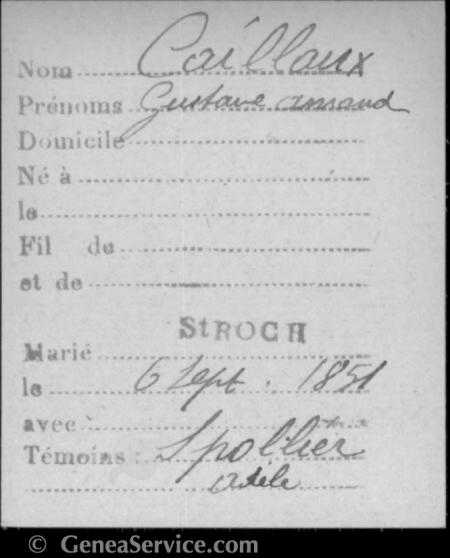 Nom Caillaux
Prénoms Gustave Armand
Domicile
Né à
le
Fil de
et de
St ROCH
Marié
le 6 Sept. 1851
avec
Témoins : Spollier
Adèle
© GeneaService.com